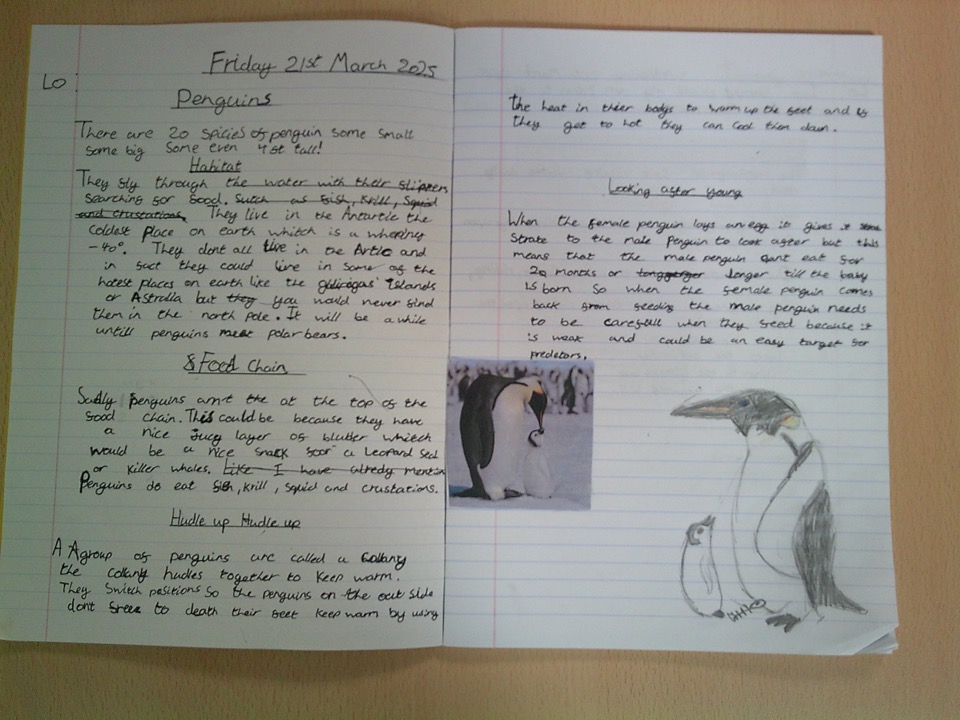 Friday 21st March 2025
LO:
Penguins
There are 20 spicies of penguin some small
some big some even 4st tall!
Habitat
They fly through the water with their flippers
searching for food. Sutch as fish, Krill, Squid
and crustations. They live in the Antartic the
coldest place on earth whitch is a whering
-40°. They dont all live in the Artic and
in fact they could live in some of the
hotest places on earth like the Islands
or Astralia but they you would never find
them in the north pole. It will be a while
untill penguins meet polar bears.
Food Chain
Sadly penguins arn't the at the top of the
food chain. This could be because they have
a nice jucy layer of blubber whitch
would be a nice snack foor a Leopard Seal
or killer whales. Like I have alredy mention
Penguins do eat fish, krill, squid and crustations.
Hudle up Hudle up
A A group of penguins are called a Collany
the collany hudles together to keep warm.
They Switch positions So the penguins on the out side
dont freee to death their feet keep warm by using
the heat in thier bodys to warm up the feet and if
they get to hot they can Cool them down.
Looking after young
When the female penguin lays an egg it gives it
Strate to the male Penguin to look after but this
means that the male penguin cant eat for
2 months or longer till the baby
is born So when the female penguin comes
back from feeding the male penguin needs
to be carefull when they feed because it
is weak and could be an easy target for
predetors.